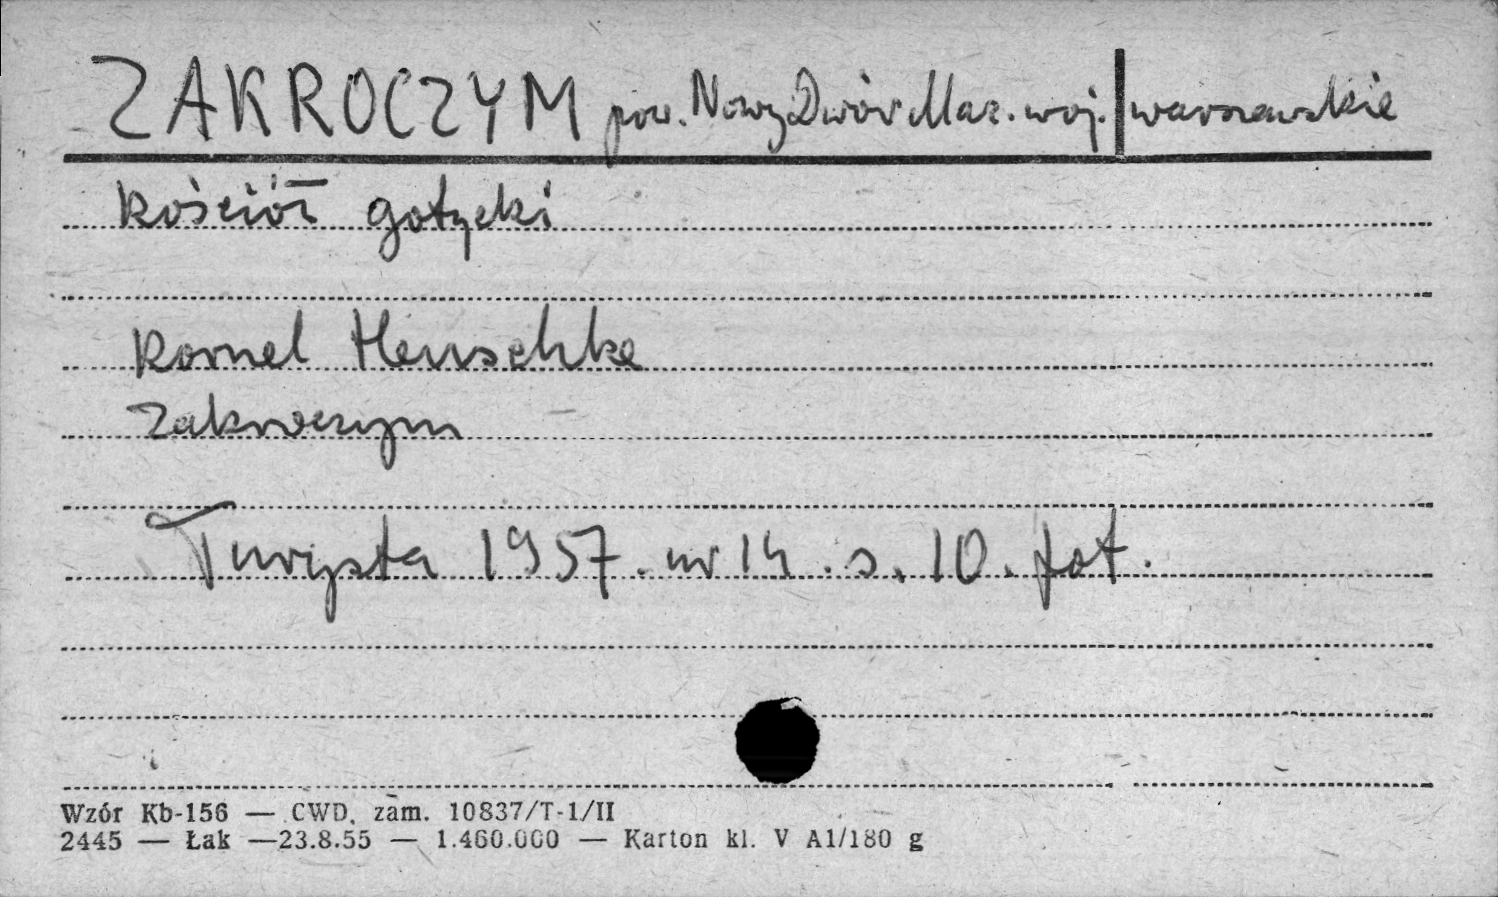 ZAKROCZYM pow. Nowy Dwór Maz. woj. warszawskie
Kościół gotycki
Kornel Henschke
Zakroczym
Turysta 1957. nr 14. s. 10. fot.
Wzór Kb-156 — CWD, zam. 10837/T-1/II
2445 — Łak —23.8.55 — 1.460.000 — Karton kl. V A1/180 g